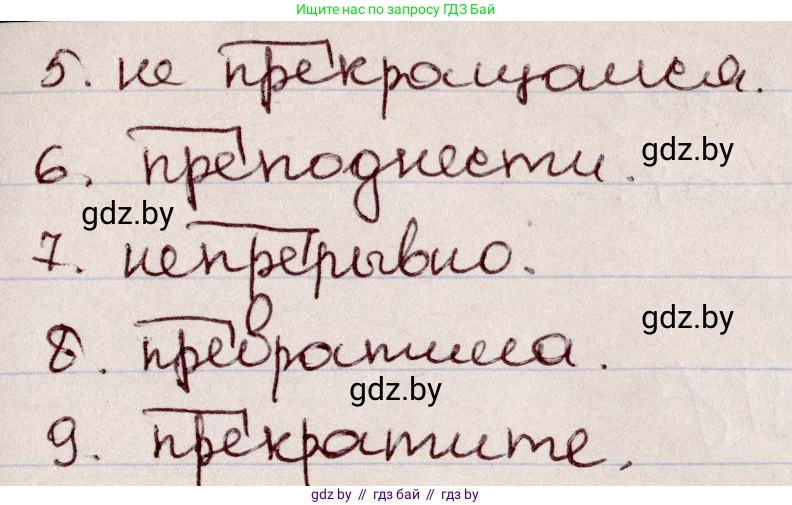 Ищите нас по запросу ГДЗ Бай
5. не прекращался.
6. преподнести.
gdz.by
gdz.by
7. непрерывно.
8. превратила.
gdz.by
gdz.by
9. прекратите.
gdz.by // гдз бай // gdz.by